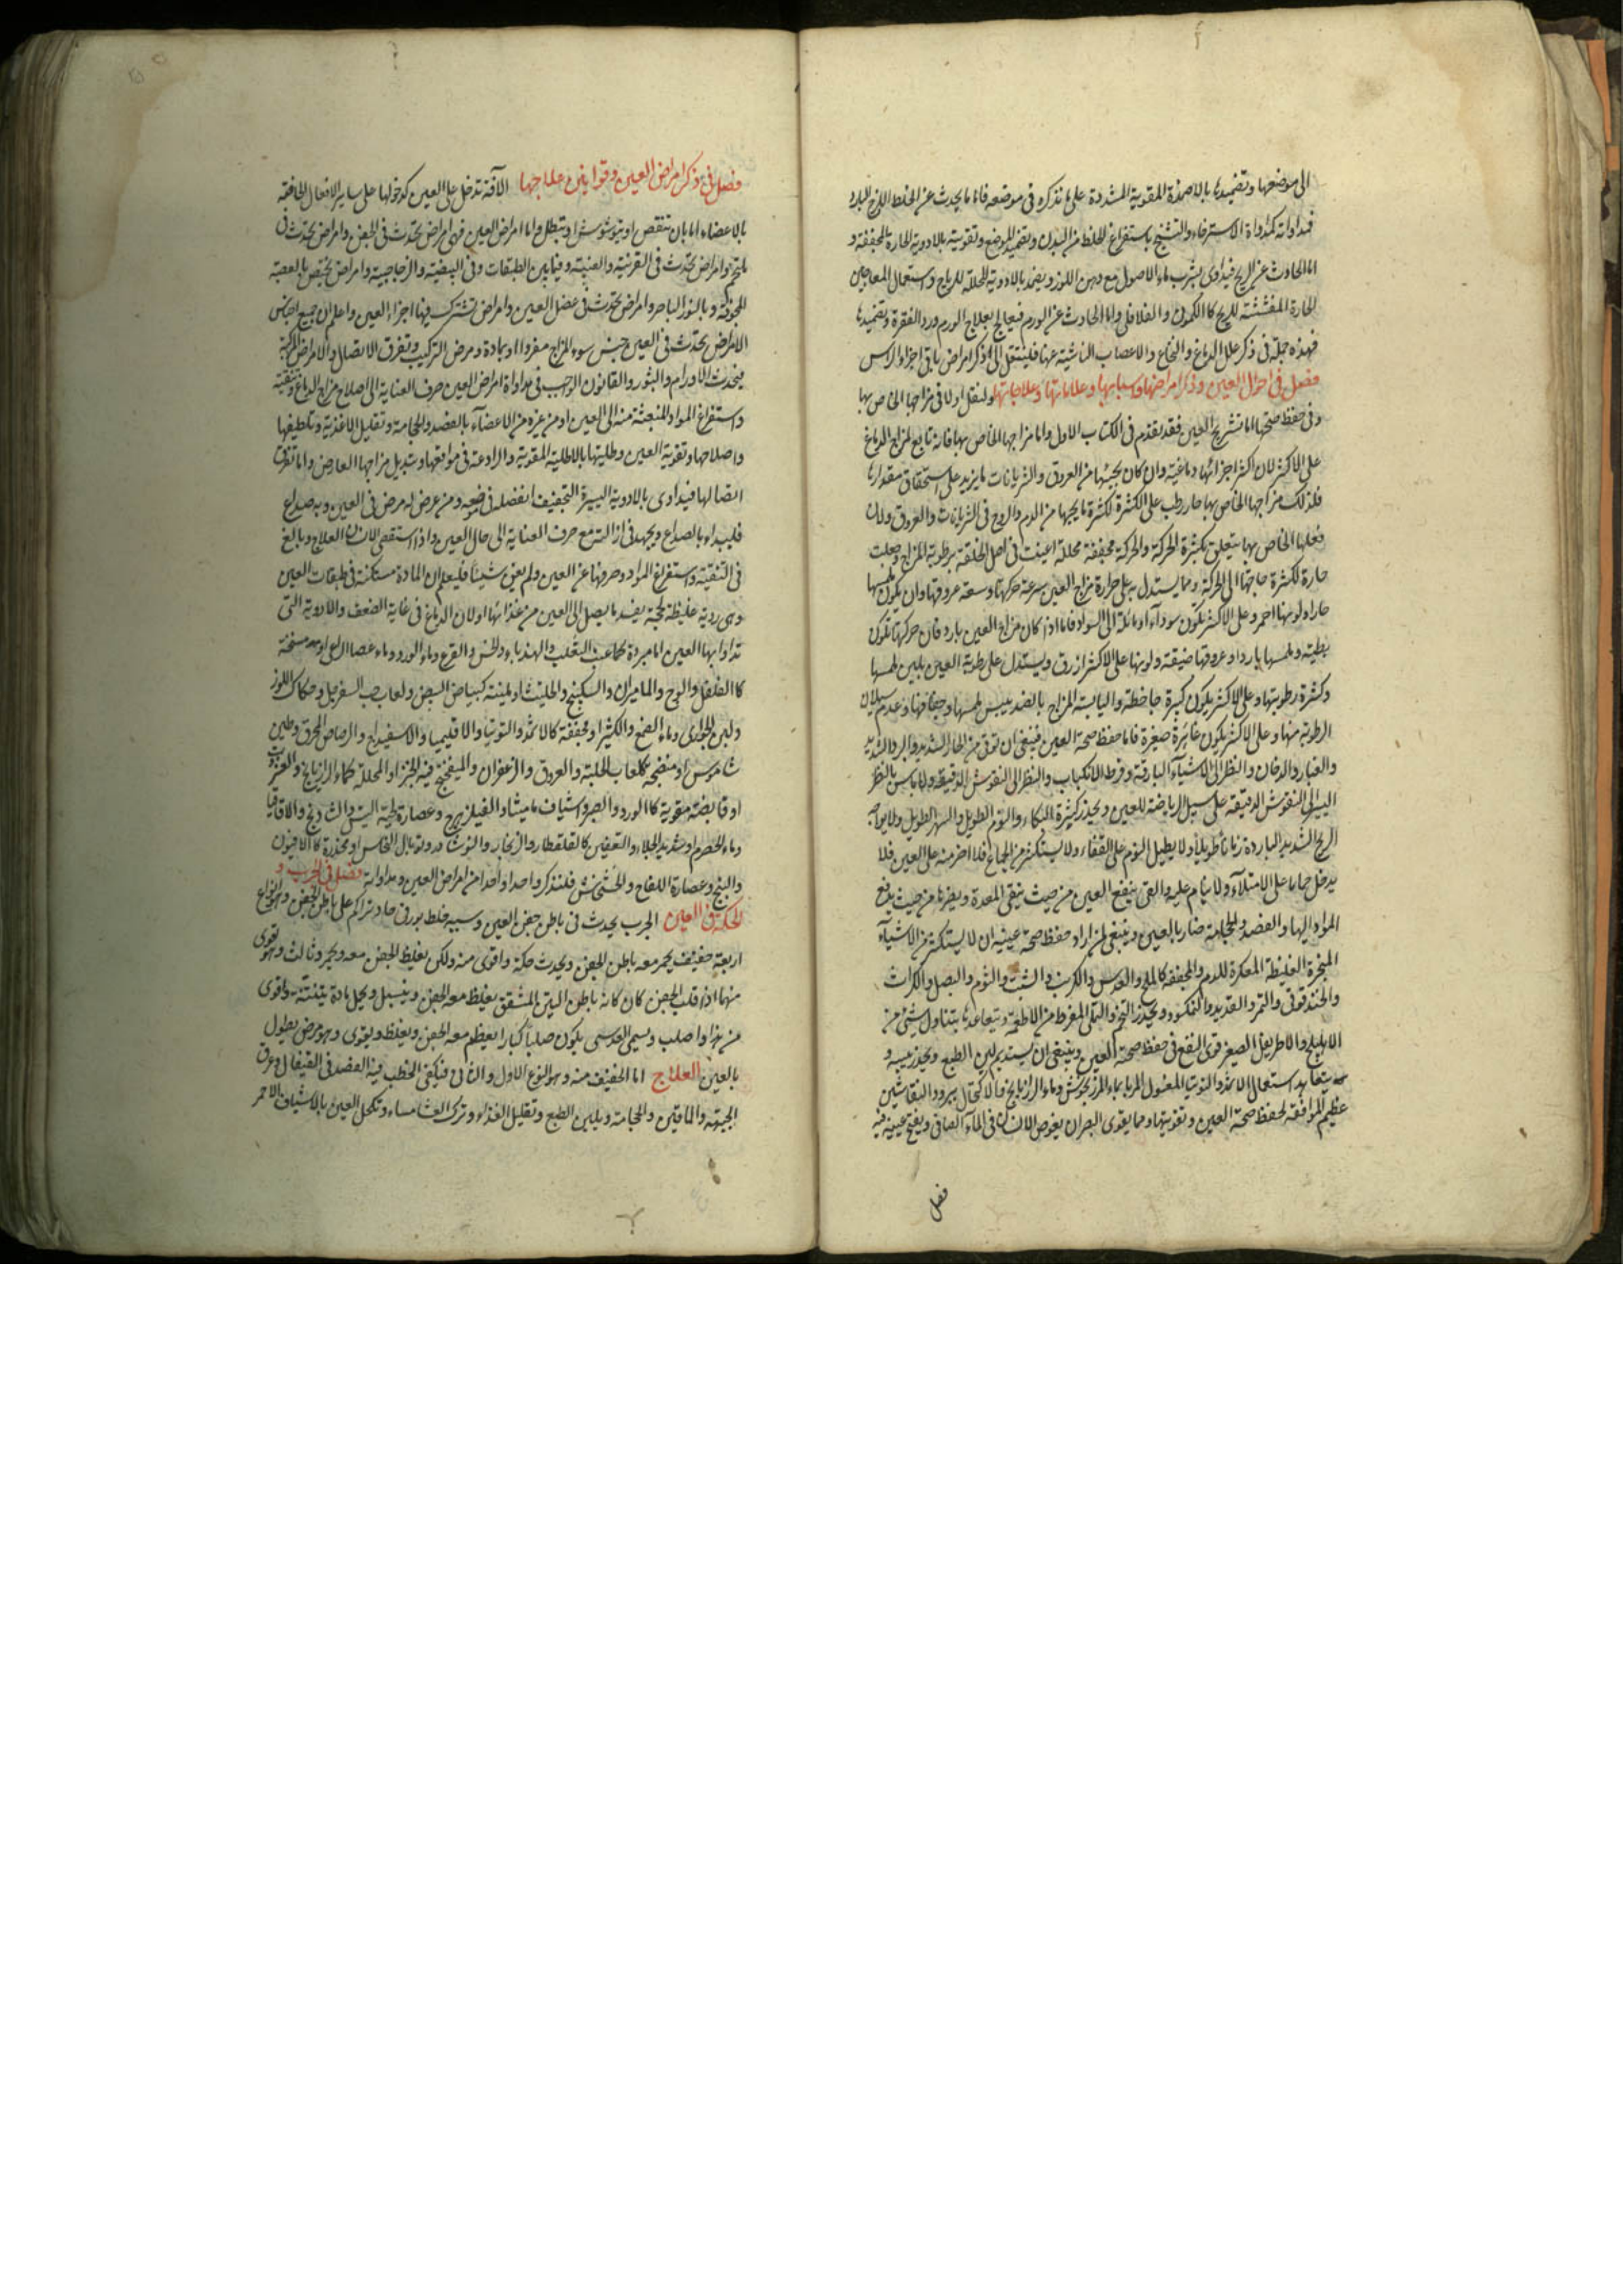 الى موضعها وتضميدها بالاضمدة المقوية المشددة على ما نذكره فى موضعه فاما ما يحدث عن الخلط اللزج البارد
فمداواته كمداواة الاسترخاء والتشنج باستفراغ الخلط من البدن وتضميد الموضع وتقويته بالادوية الحارة المجففة و
اما الحادث عن الريح فيداوى بشرب ماء الاصول مع دهن اللوز ويضمد بالادوية المحللة للرياح واستعمال المعاجين
الحارة المفششة للريح كالكمونى والفلافلى واما الحادث عن الورم فيعالج بعلاج الورم ورد الفقرة وتضميدها
فهذه جملة فى ذكر علل الدماغ والنخاع والاعصاب الناشية عنها فلينتقل الى ذكر امراض باقى اجزاء الراس
فصل فى احوال العين وذكر امراضها واسبابها وعلاماتها وعلاجاتها ولنقل اولا فى مزاجها الخاص بها
وفى حفظ صحتها اما تشريح العين فقد تقدم فى الكتاب الاول واما مزاجها الخاص بها فانه تابع لمزاج الدماغ
على الاكثر لان اكثر اجزائها دماغية وان كان يجيئها من العروق والشريانات ما يزيد على استحقاق مقدارها
فلذلك مزاجها الخاص بها حار رطب على الكثرة لكثرة ما يجيها من الدم والروح فى الشريانات والعروق ولان
فعلها الخاص بها يتعلق بكثرة الحركة والحركة مجففة محللة اعينت فى اصل الخلقة برطوبة المزاج وجعلت
حارة لكثرة حاجتها الى الحركة ومما يستدل به على حرارة مزاج العين سرعة حركتها وسعة عروقها وان يكون ملمسها
حارا ولونها احمر وعلى الاكثر يكون سوداء او مائلة الى السواد فاما اذا كان مزاج العين بارد فان حركتها تكون
بطيئة وملمسها باردا وعروقها ضيقة ولونها على الاكثر ازرق ويستدل على رطوبة العين بلين ملمسها
وكثرة رطوبتها وعلى الاكثر يكون كبيرة جاحظة واليابسة المزاج بالضد بيبس ملمسها وجفافها وعدم سيلان
الرطوبة منها وعلى الاكثر يكون غائرة صغيرة فاما حفظ صحة العين فينبغى ان توقى من الحار الشديد والبرد الشديد
والغبار والدخان والنظر الى الاشياء البارقة وفرط الانكباب والنظر الى النقوش الدقيقة ولا باس بالنظر
اليسير الى النقوش الدقيقة على سبيل الرياضة للعين ويحذر كثيرة البكاء والنوم الطويل والسهر الطويل ولا يواجه
الريح الشديد الباردة زمانا طويلا ولا يطيل النوم على القفاء ولا يستكثر من الجماع فلا اضر منه على العين فلا
يدخل حماما على الامتلاء ولا ينام عليه والقى ينفع العين من حيث ينقى المعدة ويضرها من حيث يدفع
المواد اليها والفصد والحجامة ضار بالعين وينبغى لمن اراد حفظ صحة عينيه ان لا يستكثر من الاشياء
المبخرة الغليظة المعكرة للدم والمجففة كالملح والعدس والكرنب والشبت والثوم والبصل والكراث
والحندقوقى والتمر والقديد والنمكسود ويحذر التخم والتملى المفرط من الاطعمة ويتعاهدها بتناول شئ من
الاهليلج والاطريفل الصغير قوى النفع فى حفظ صحة العين وينبغى ان يستديم لين الطبع ويحذر يبسه و
يتعاهد استعمال الاثمد والتوتيا المغسول المربا بماء المرزنجوش وماء الرازيانج فالاكتحال ببرود النقاشين
عظيم الموافقة لحفظ صحة العين وتقويتها ومما يقوى البصر ان يغوص الانسان فى الماء الصافى ويفتح عينيه فيه
فصل
فصل فى ذكر امراض العين وقوانين علاجها الآفة تدخل على العين كدخولها على ساير الافعال الخاصة
بالاعضاء اما بان تنقص او يتشوش او يبطل واما امراض العين فهى امراض تحدث فى الجفن وامراض تحدث فى
الملتحم وامراض تحدث فى القرنية والعنبية وفيما بين الطبقات وفى البيضية والزجاجية وامراض تختص بالعصبة
المجوفة وبالنور الباصر وامراض تحدث فى عضل العين وامراض تشترك فيها اجزاء العين واعلم ان جميع اجناس
الامراض تحدث فى العين جنس سوء المزاج مفردا او بمادة ومرض التركيب وتفرق الاتصال والامراض المركبة
فيحدث الاورام والبثور والقانون الواجب فى مداواة امراض العين صرف العناية الى اصلاح مزاج الدماغ وتنقيته
واستفراغ المواد المنبعثة منه الى العين او من غيره من الاعضاء بالفصد والحجامة وتقليل الاغذية وتلطيفها
واصلاحها وتقوية العين وطليها بالاطلية المقوية والرادعة فى مواقعها وتبديل مزاجها العارض واما تفرق
اتصالها فيداوى بالادوية اليسيرة التجفيف ومن عرض له مرض فى العين وبه صداع
فليبداء بالصداع ويجهد فى ازالته مع صرف العناية الى حال العين واذا استقصى الانسان العلاج وبالغ
فى التنقية واستفراغ المواد وصرفها عن العين ولم يغن شيئا فليعلم ان المادة مستكنة فى طبقات العين
وهى ردية غليظة لحجة يفسد ما يصل الى العين من غذائها اولان الدماغ فى غاية الضعف والادوية التى
تداوا بها العين اما مبردة كماء عنب الثعلب والهندباء والخس والقرع وماء الورد وماء عصا الراعى او مسخنة
كالفلفل والوج والماميران والسكبينج والحلتيت او ملينة كبياض البيض ولعاب حب السفرجل وحكاك اللوز
ولبن الجوارى وماء الصمغ والكثيرا او مجففة كالاثمد والتوتيا والاقليميا والاسفيداج والرصاص المحرق وطين
شاموس او منضجة كلعاب الحلبة والعروق والزعفران والميفختج فيه الخبز او المحللة كماء الرازيانج والعنزروت
او قابضة مقوية كالورد والصبر واشياف ماميثا والفيلزهرج وعصارة لحية التيس والشاذنج والاقاقيا
وماء الحصرم او شديد الجلاء والتعفين كالقلقطار والزنجار والنوشادر وتوبال النحاس او مخدرة كالافيون
والبنج وعصارة اللفاح والخشخاش فلنذكر واحدا واحدا من امراض العين ومداواته فصل فى الجرب و
الحكة فى العين الجرب يحدث فى باطن جفن العين وسببه خلط بورقى حاد يتراكم على باطن الجفن وهو انواع
اربعة خفيف يحمر معه باطن الجفن ويحدث حكة واقوى منه ولكن يغليظ الجفن معه ويحمر وثالث وهو اقوى
منهما اذا قلب الجفن كان كانه باطن التين المشقق يغلظ معه الجفن وينسبل ويحيل مادة ينتنة واقوى
من هذا واصلب ويسمى العدسى يكون صلبا كبارا يعظم معه الجفن ويغلظ ويقوى وهو مرض يطول
بالعين العلاج اما الخفيف منه وهو النوع الاول والثانى فيكفى الخطب فيه الفصد فى القيفال وعرق
الجبهة والماقين والحجامة ويلين الطبع وتقليل الغذاء وترك العشاء مساء وتكحل العين بالاشياف الاحمر